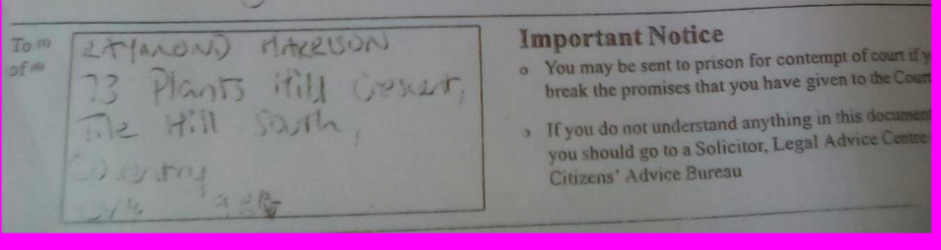 To
of
RAYMOND HARRISON
73 Plants Hill Crescent,
Tile Hill South,
Coventry
Important Notice
You may be sent to prison for contempt of court if y
break the promises that you have given to the Court
If you do not understand anything in this document
you should go to a Solicitor, Legal Advice Centre
Citizens' Advice Bureau